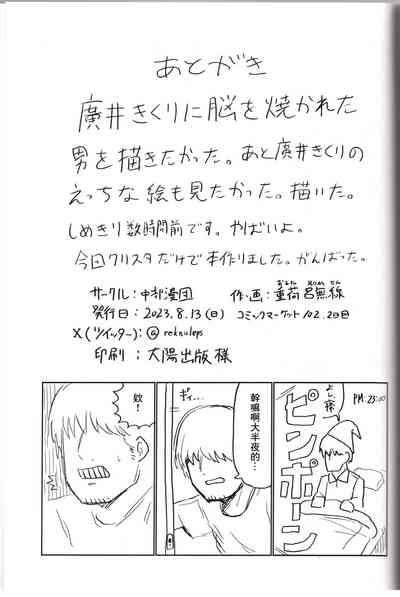 あとがき
廣井きくりに脳を焼かれた
男を描きたかった。あと廣井きくりの
えっちな絵も見たかった。描いた。
しめきり数時間前です。やばいよ。
今回クリスタだけで本作りました。がんばった。
サークル:中邦漫団
作・画:重荷呂無様
発行日:2023.8.13(日) コミックマーケット102.2日目
X(ツイッター):@reknuleps
印刷:太陽出版様
PM:23:00
よし、寝
ピンポーン
幹嘛啊大半夜的…
ギィ…
欸!